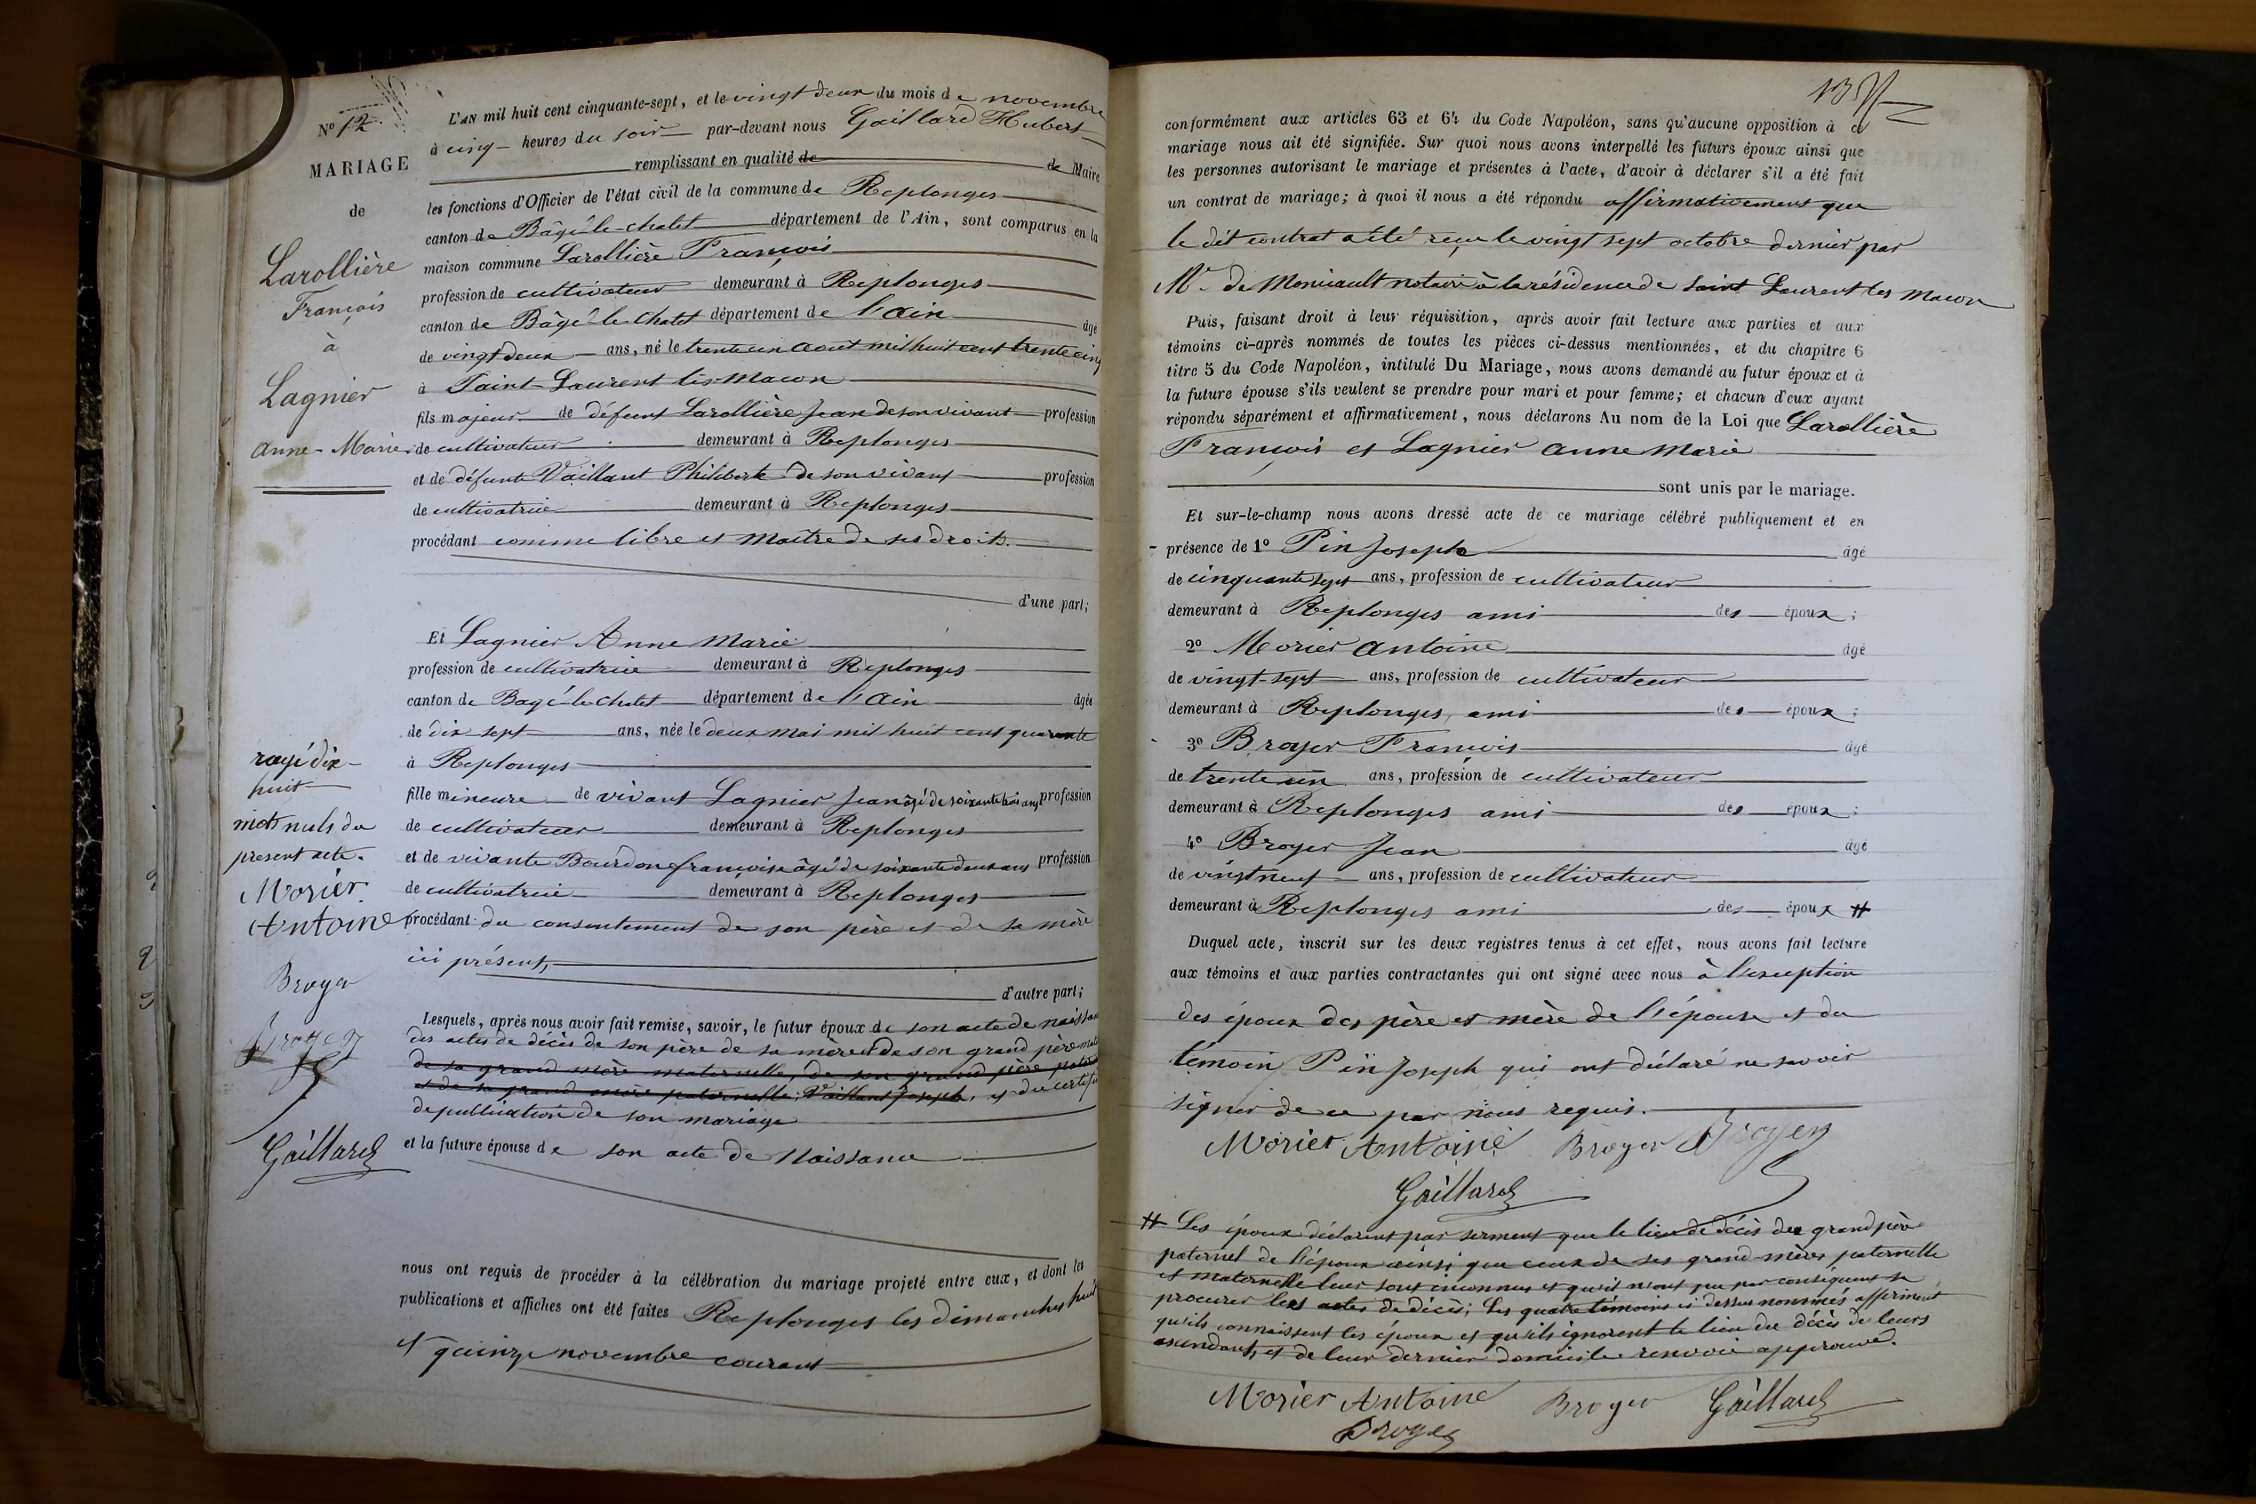 N° 12
MARIAGE
de
Larollière
François
à
Lagnier
Anne-Marie
rayé dix-
huit
mots nuls du
present acte.
Morier
Antoine
Broyer
Broyer
Gaillard
L'AN mil huit cent cinquante-sept, et le vingt deux du mois de novembre
à cinq heures du soir par-devant nous Gaillard Hubert
remplissant en qualité de de Maire
les fonctions d'Officier de l'état civil de la commune de Replonges
canton de Bâgé-le-chatel département de l'Ain, sont comparus en la
maison commune Larollière François
profession de cultivateur demeurant à Replonges
canton de Bâgé-le-Chatel département de l'ain âgé
de vingt deux ans, né le trente un aout mil huit cent trente cinq
à Saint-Laurent lès-Macon
fils majeur de défunt Larollière Jean de son vivant profession
de cultivateur demeurant à Replonges
et de défunte Vaillant Philiberte de son vivant profession
de cultivatrice demeurant à Replonges
procédant comme libre et maître de ses droits.
d'une part;
Et Lagnier Anne Marie
profession de cultivatrice demeurant à Replonges
canton de Bagé-le-Chatel département de l'Ain âgée
de dix sept ans, née le deux mai mil huit cent quarante
à Replonges
fille mineure de vivant Lagnier Jean âgé de soixante trois ans profession
de cultivateur demeurant à Replonges
et de vivante Bourdon françoise âgé de soixante deux ans profession
de cultivatrice demeurant à Replonges
procédant du consentement de son père et de sa mère
ici présent,
d'autre part;
Lesquels, après nous avoir fait remise, savoir, le futur époux de son acte de naissance
des actes de décès de son père de sa mère et de son grand père
de sa grand mère maternelle, de son grand père
et de sa grand mère paternelle; Vaillant Joseph, et du
de publication de son mariage
et la future épouse de son acte de Naissance
nous ont requis de procéder à la célébration du mariage projeté entre eux, et dont les
publications et affiches ont été faites Replonges les dimanches huit
et quinze novembre courant
conformément aux articles 63 et 64 du Code Napoléon, sans qu'aucune opposition à ce
mariage nous ait été signifiée. Sur quoi nous avons interpellé les futurs époux ainsi que
les personnes autorisant le mariage et présentes à l'acte, d'avoir à déclarer s'il a été fait
un contrat de mariage; à quoi il nous a été répondu affirmativement que
le dit contrat a été reçu le vingt sept octobre dernier par
Me de notaire à la résidence de Saint Laurent les Macon
Puis, faisant droit à leur réquisition, après avoir fait lecture aux parties et aux
témoins ci-après nommés de toutes les pièces ci-dessus mentionnées, et du chapitre 6
titre 5 du Code Napoléon, intitulé Du Mariage, nous avons demandé au futur époux et à
la future épouse s'ils veulent se prendre pour mari et pour femme; et chacun d'eux ayant
répondu séparément et affirmativement, nous déclarons Au nom de la Loi que Larollière
François et Lagnier Anne Marie
sont unis par le mariage.
Et sur-le-champ nous avons dressé acte de ce mariage célébré publiquement et en
présence de 1° Pin Joseph âgé
de cinquante sept ans, profession de cultivateur
demeurant à Replonges ami des époux;
2° Morier Antoine âgé
de vingt-sept ans, profession de cultivateur
demeurant à Replonges, ami des époux;
3° Broyer François âgé
de trente un ans, profession de cultivateur
demeurant à Replonges ami des époux;
4° Broyer Jean âgé
de vingt neuf ans, profession de cultivateur
demeurant à Replonges ami des époux #
Duquel acte, inscrit sur les deux registres tenus à cet effet, nous avons fait lecture
aux témoins et aux parties contractantes qui ont signé avec nous à l'exception
des époux des père et mère de l'épouse et du
témoin Pin Joseph qui ont déclaré ne savoir
signer de ce par nous requis.
Morier Antoine Broyer Broyer
Gaillard
# Les époux déclarent par serment que le lieu de décès du grand père
paternel de l'époux ainsi que ceux de ses grand-mères paternelle
et maternelle leur sont inconnus et qu'il n'ont pu par conséquent se
procurer les actes de décès; Les quatre témoins ci dessus nommés affirment
qu'ils connaissent les époux et qu'ils ignorent le lieu du décès de leurs
ascendants, et de leur dernier domicile renvoi approuvé.
Morier Antoine Broyer Gaillard
Broyer